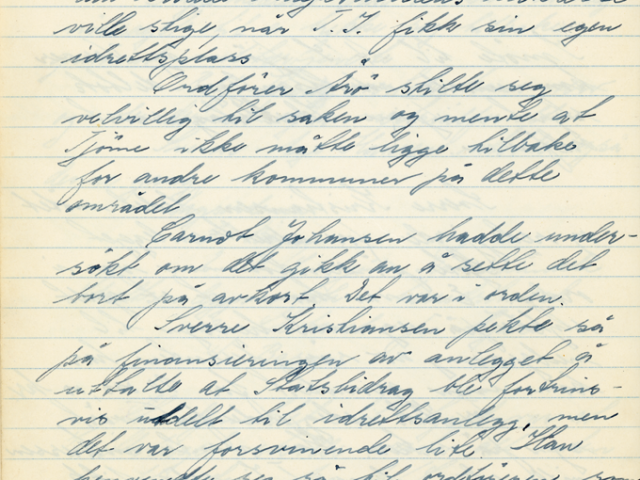 ville stige, når T. I. fikk sin egen
idrettsplass
Ordfører Arø stilte seg
velvillig til saken og mente at
Tjöme ikke måtte ligge tilbake
for andre kommuner på dette
området
Carnot Johansen hadde under-
søkt om det gikk an å sette det
bort på avkort. Det var i orden.
Sverre Kristiansen pekte så
på finansieringen av anlegget å
uttalte at Statsbidrag ble fortrins-
vis utdelt til idrettsanlegg, men
det var forsvinende lite. Han
henvendte seg så til ordføreren som